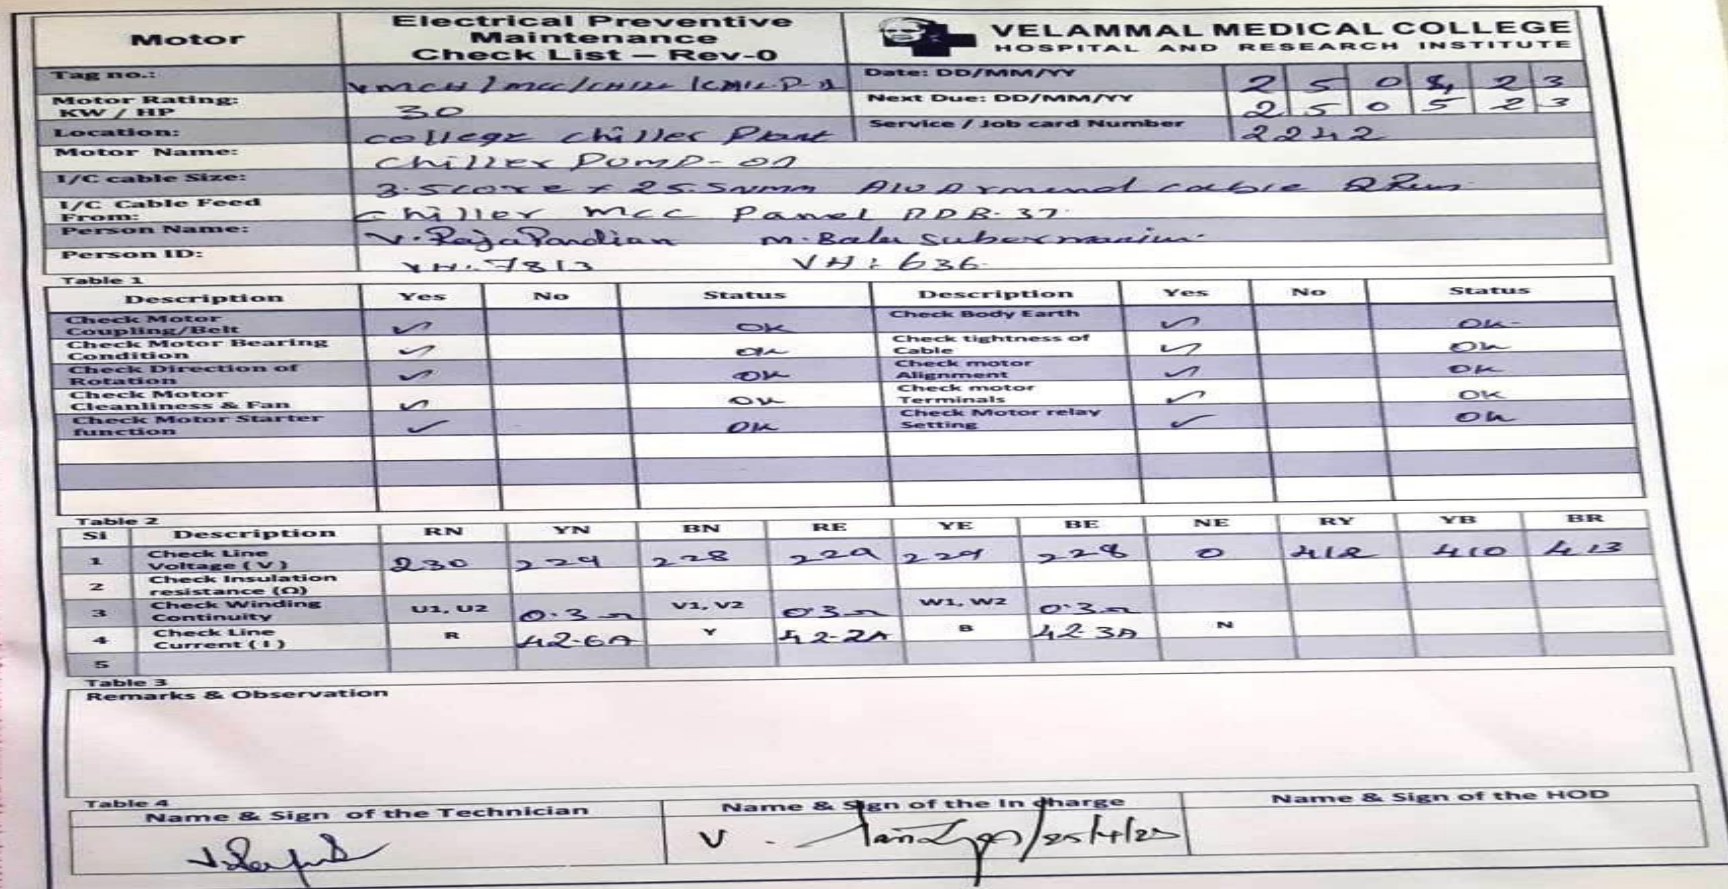 Motor
Electrical Preventive
Maintenance
Check List – Rev-0
VELAMMAL MEDICAL COLLEGE
HOSPITAL AND RESEARCH INSTITUTE
Tag no.:
Date: DD/MM/YY 2 5 0 4 2 3
Motor Rating:
KW / HP 30
Next Due: DD/MM/YY 2 5 0 5 2 3
Location: college chiller Plant
Service / Job card Number 2242
Motor Name: Chiller Pump-01
I/C cable Size: 3.5core x 25.Sqmm cable 2 Run
I/C Cable Feed
From: Chiller mcc Panel PDB-37
Person Name: V. RajaPandian m. Bala
Person ID: VH: 7813 VH: 636
Table 1
Description Yes No Status Description Yes No Status
Check Motor
Coupling/Belt ✓ OK
Check Body Earth ✓ OK
Check Motor Bearing
Condition ✓ OK
Check tightness of
Cable ✓ OK
Check Direction of
Rotation ✓ OK
Check motor
Alignment ✓ OK
Check Motor
Cleanliness & Fan ✓ OK
Check motor
Terminals ✓ OK
Check Motor Starter
function ✓ OK
Check Motor relay
Setting ✓ OK
Table 2
Sl Description RN YN BN RE YE BE NE RY YB BR
1 Check Line
Voltage ( V ) 230 229 228 229 229 228 0 412 410 413
2 Check Insulation
resistance (Ω)
3 Check Winding
Continuity U1, U2 0.3Ω V1, V2 0.3Ω W1, W2 0.3Ω
4 Check Line
Current ( I ) R 42.6A Y 42.2A B 42.3A N
5
Table 3
Remarks & Observation
Table 4
Name & Sign of the Technician
Name & Sign of the In charge
Name & Sign of the HOD
V. 25/4/23